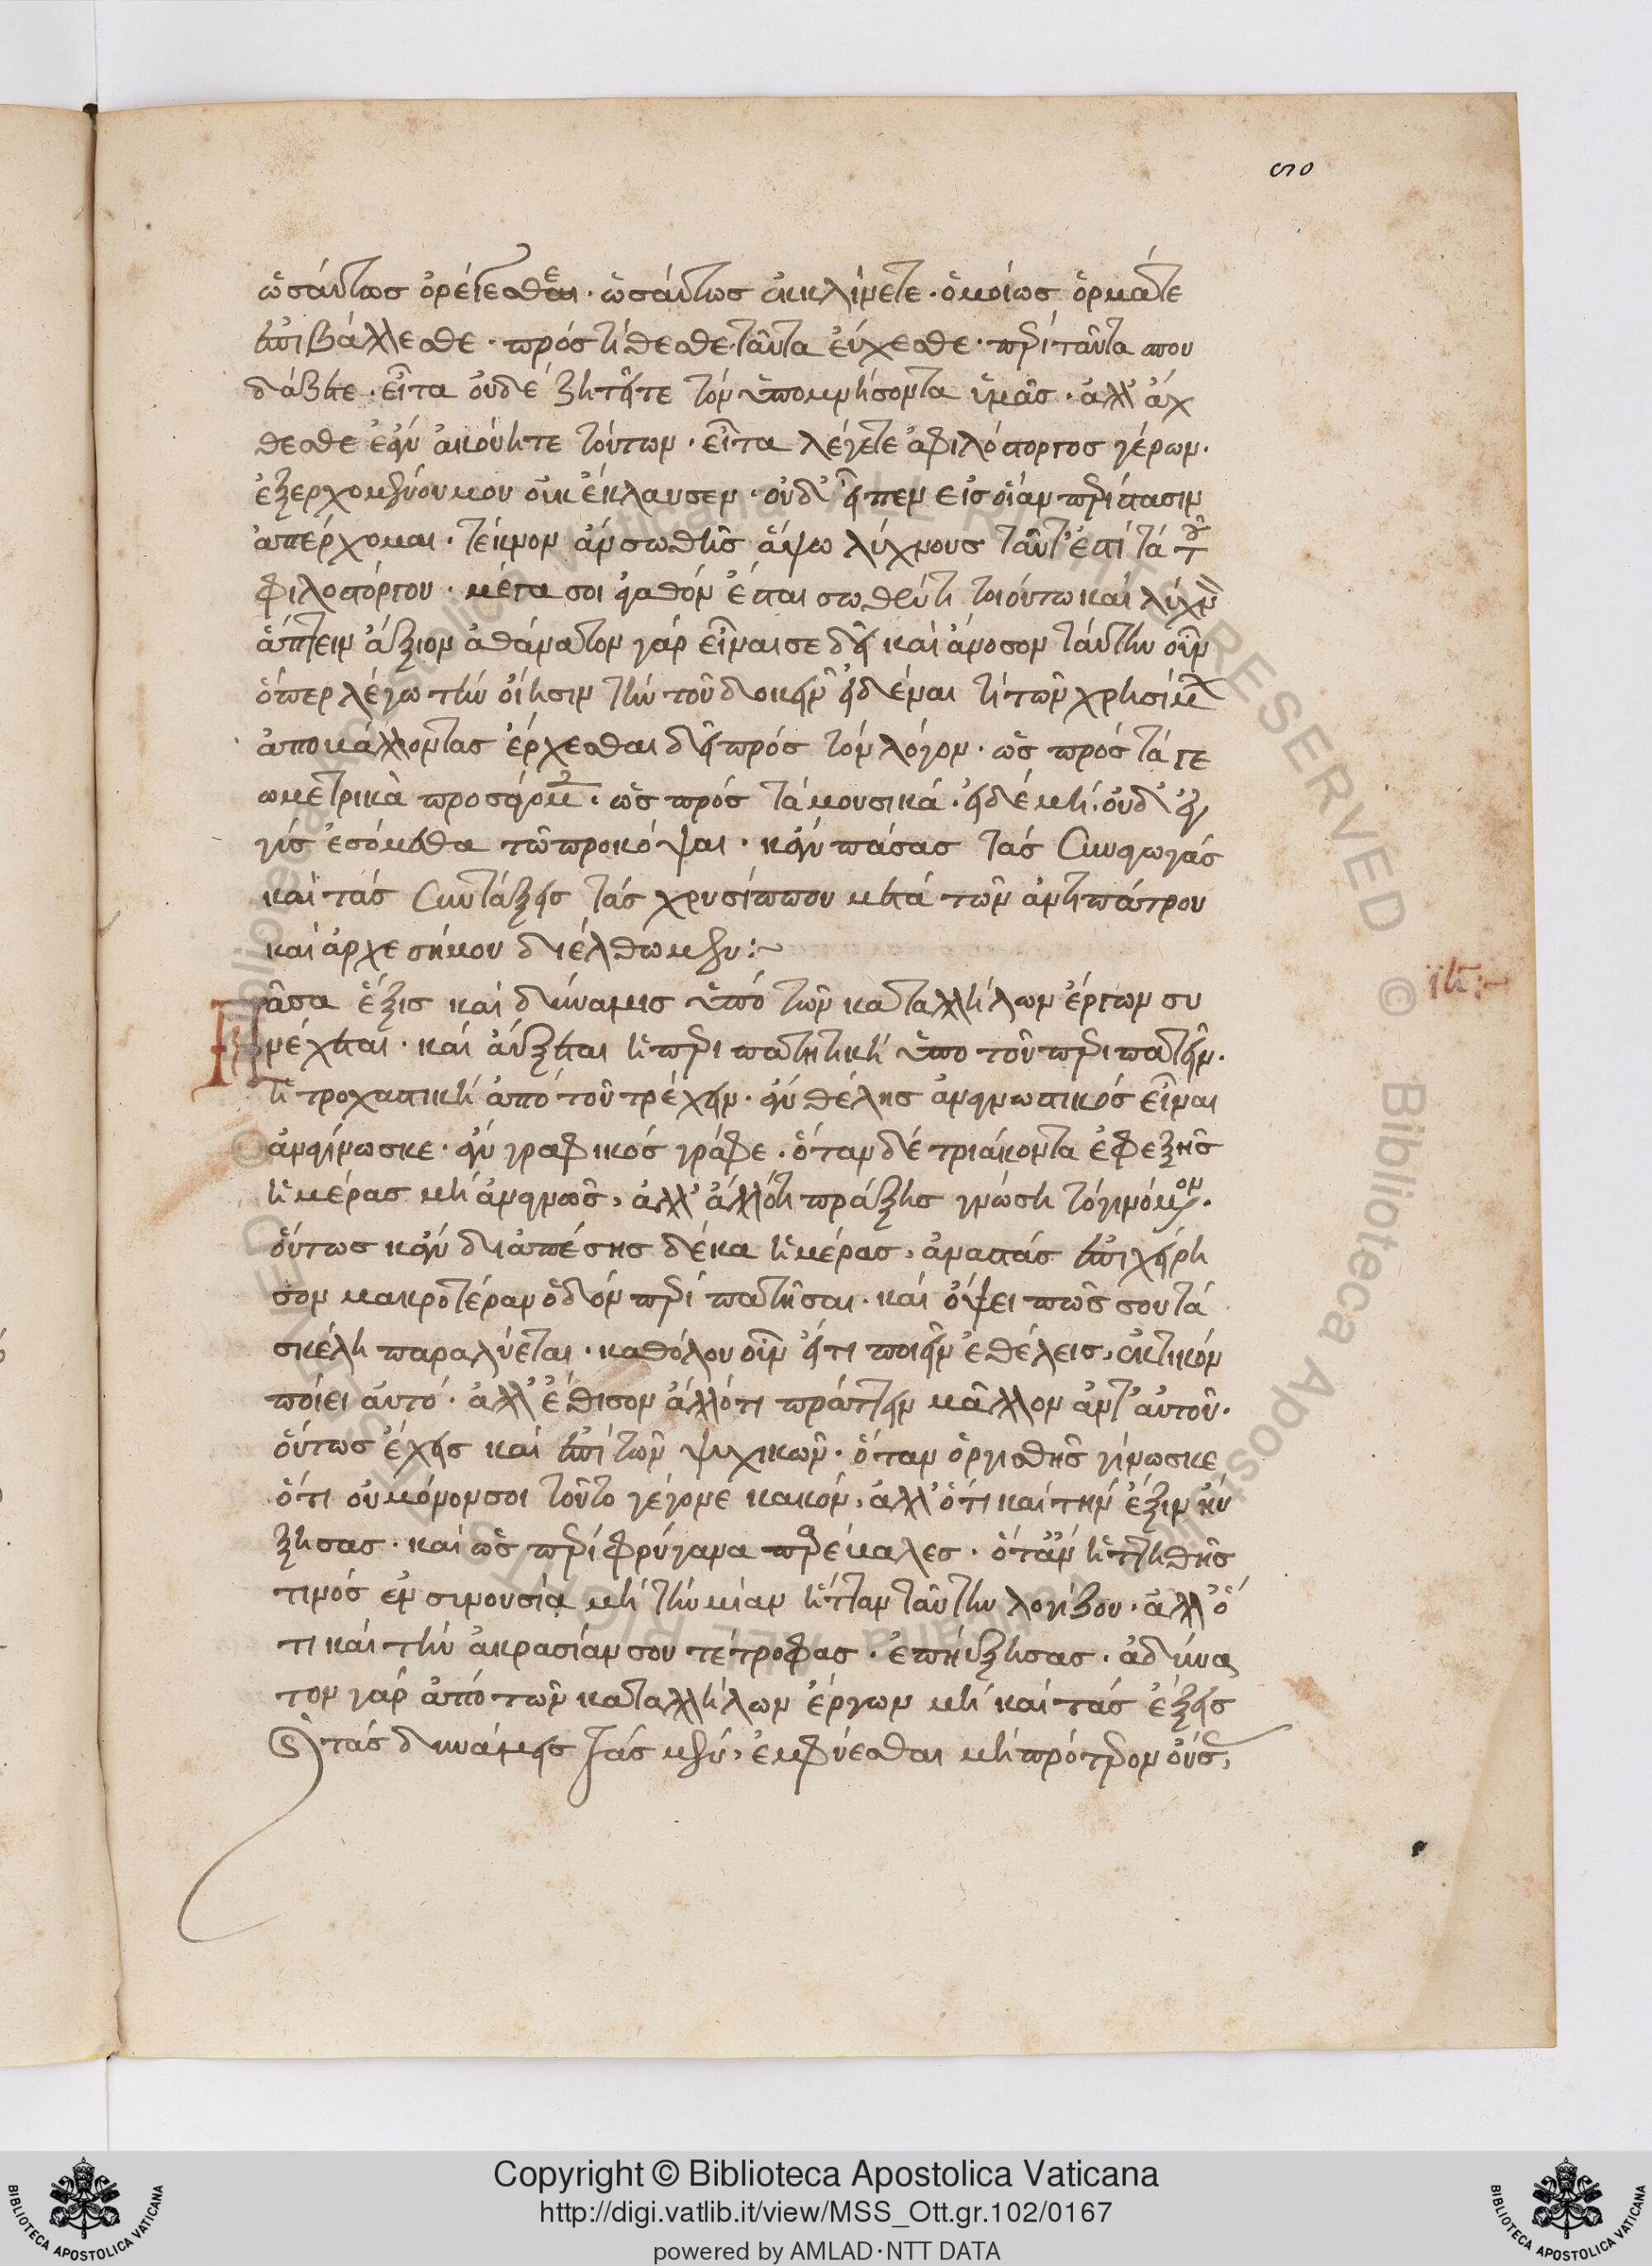 ὡσαύτως ὀρέγεσθε· ὡσαύτως ἐκκλίνετε· ὁμοίως ὁρμᾶτε
ἐπιβάλλεσθε· πρόστίθεσθε· ταῦτα εὔχεσθε· περὶ ταῦτα σπου
δάζετε· εἶτα οὐδέ ζητεῖτε τόν ὑπομνήσοντα ὑμᾶς· ἀλλ' ἄχ
θεσθε ἐάν ἀκούητε τούτων· εἶτα λέγετε ἀφιλόστοργος γέρων·
ἐξερχομένου μου οὐκ ἔκλαυσεν· οὐδ' εἶπεν εἰς οἵαν περίστασιν
ἀπέρχομαι· τέκνον ἄν σωθῆς ἅψω λύχνους ταῦτ' ἐστί τά τοῦ
φιλοστόργου· μέγα σοι ἀγαθόν ἔσται σωθέντι τοιούτω καί λύχν
ἅπτειν ἄξιον ἀθάνατον γάρ εἶναι σε δεῖ καί ἄνοσον ταύτην οὖν
ὅπερ λέγω τήν οἴησιν τήν τοῦ δοκεῖν εἰδέναι τί τῶν χρησίμ
ἀποβάλλοντας ἔρχεσθαι δεῖ πρός τόν λόγον· ὡς πρός τά γε
ωμετρικὰ προσάγομεν· ὡς πρός τά μουσικά· εἰ δέ μή· οὐδ' ἐγ
γύς ἐσόμεθα τῶ προκόψαι· κἄν πάσας τάς συναγωγάς
καί τάς συντάξεις τάς χρυσίππου μετά τῶν ἀντιπάτρου
καί ἀρχεδήμου διέλθωμεν:~
ιη:~
Πᾶσα ἕξις καί δύναμις ὑπό τῶν καταλλήλων ἔργων συ
νέχεται· καί αὔξεται ἡ περιπατητική ὑπο τοῦ περιπατεῖν·
ἡ τροχαστική ἀπό τοῦ τρέχειν· ἄν θέλης ἀναγνωστικός εἶναι
ἀναγίνωσκε· ἄν γραφικός γράφε· ὅταν δέ τριάκοντα ἐφεξῆς
ἡμέρας μή ἀναγνῶς, ἀλλ' ἄλλό τι πράξης γνώση τό γινόμενον·
οὕτως κἄν διαπέσης δέκα ἡμέρας, ἀναστάς ἐπιχείρη
σον μακροτέραν ὁδόν περιπατῆσαι· καί ὄψει πῶς σου τά
σκέλη παραλύεται· καθόλου οὖν εἴ τι ποιεῖν ἐθέλεις, ἑκτικόν
ποίει αὐτό· ἀλλ' ἔθισον ἄλλό τι πράττειν μᾶλλον ἀντ' αὐτοῦ·
οὕτως ἔχεις καί ἐπί τῶν ψυχικῶν· ὅταν ὀργισθῆς γίνωσκε
ὅτι οὐ μόνον σοι τοῦτο γέγονε κακόν, ἀλλ' ὅτι καί τήν ἕξιν ηὔ
ξησας· καί ὡς περί φρύγανα πῦρ ἔβαλες· ὅταν ἡττηθῆς
τινός ἐν συνουσία μή τήν μίαν ἧτταν ταύτην λογίζου· ἀλλ' ὅ
τι καί τήν ἀκρασίαν σου τέτροφας· ἐπηύξησας· ἀδύνα
τον γάρ ἀπό τῶν καταλλήλων ἔργων μή καί τάς ἕξεις
καί τάς δυνάμεις τάς μέν, ἐμφύεσθαι μή πρότερον οὔσ,
Copyright © Biblioteca Apostolica Vaticana
http://digi.vatlib.it/view/MSS_Ott.gr.102/0167
powered by AMLAD·NTT DATA